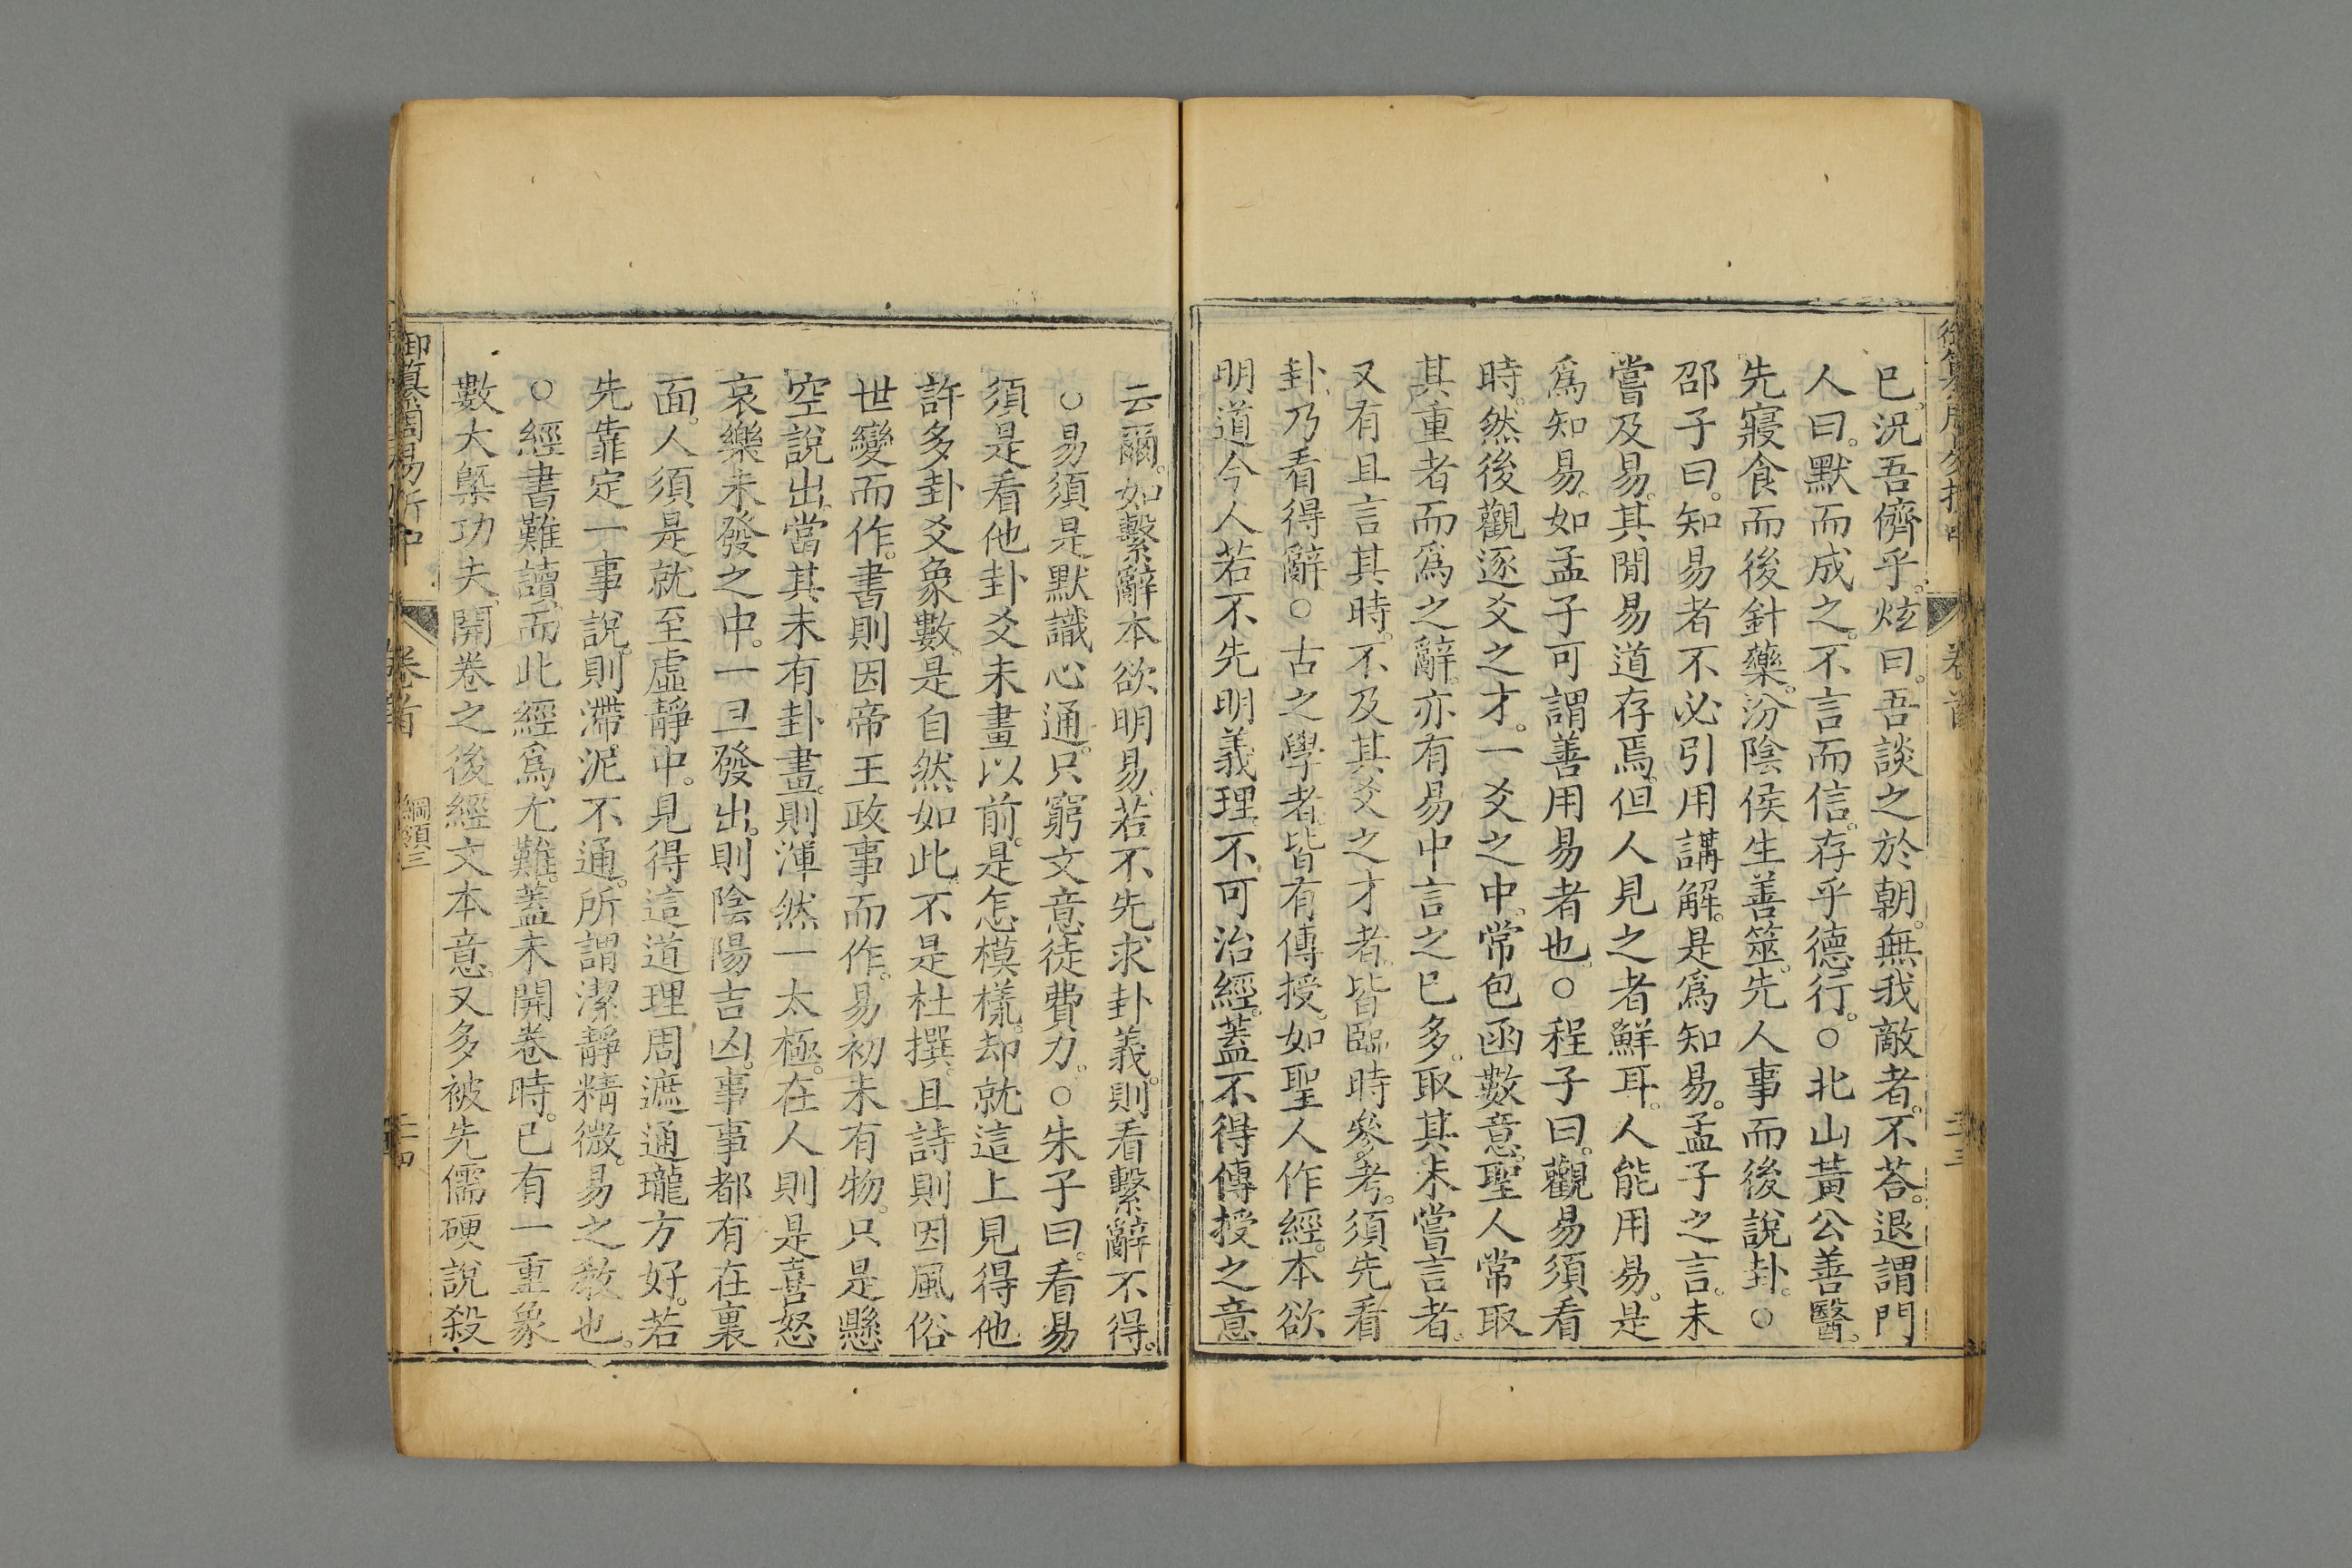 已。況吾儕乎。炫曰。吾談之於朝。無我敵者。不荅。退謂門
人曰。默而成之。不言而信。存乎德行。○北山黃公善醫。
先寢食而後針藥。汾陰侯生善筮。先人事而後說卦。○
邵子曰。知易者不必引用講解。是爲知易。孟子之言。未
嘗及易。其閒易道存焉。但人見之者鮮耳。人能用易。是
爲知易。如孟子可謂善用易者也。○程子曰。觀易須看
時。然後觀逐爻之才。一爻之中。常包函數意。聖人常取
其重者而爲之辭。亦有易中言之已多。取其未嘗言者。
又有且言其時。不及其爻之才者。皆臨時參考。須先看
卦。乃看得辭。○古之學者。皆有傳授。如聖人作經。本欲
明道今人若不先明義理。不可治經。蓋不得傳授之意
云爾。如繫辭本欲明易。若不先求卦義。則看繫辭不得。
○易須是默識心通。只窮文意徒費力。○朱子曰。看易
須是看他卦爻未畫以前。是怎模㨾。却就這上見得他
許多卦爻象數。是自然如此。不是杜撰。且詩則因風俗
世變而作。書則因帝王政事而作。易初未有物。只是懸
空說出。當其未有卦畫。則渾然一太極。在人則是喜怒
哀樂未發之中。一旦發出。則陰陽吉凶。事事都有在裏
面。人須是就至虛靜中。見得這道理周遮通瓏方好。若
先靠定一事說。則滯泥不通。所謂潔靜精微。易之敎也。
○經書難讀。而此經爲尤難。蓋未開卷時。已有一重象
數大槩功夫。開卷之後。經文本意。又多被先儒硬說殺
御纂周易折中 卷首 綱領三 二十四
卷首